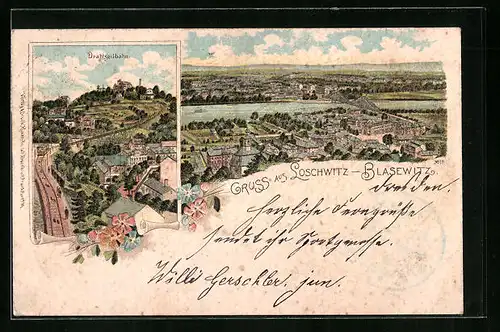 Drahtseilbahn.
GRUSS AUS LOSCHWITZ – BLASEWITZ.
Dresden.
Herzliche Ferngrüße
sendet ihr Sportgenosse.
Willi Herschler. jun.